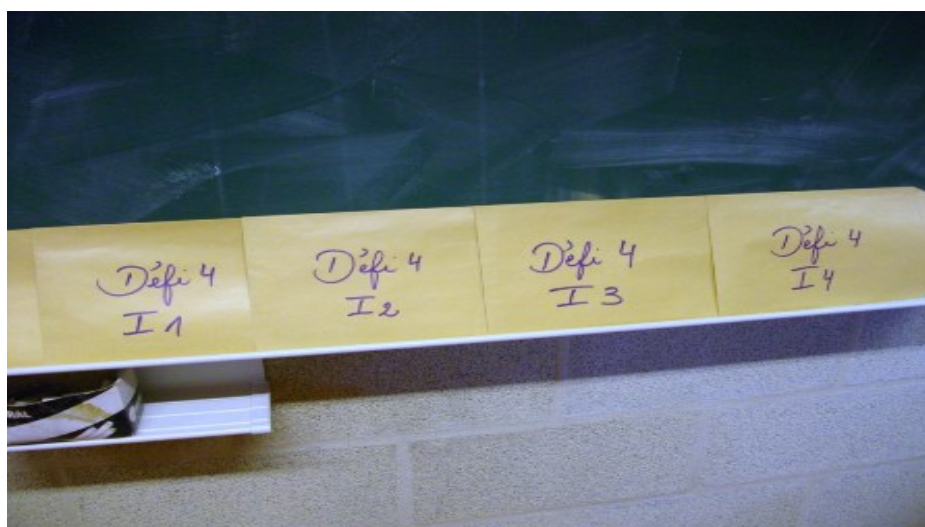 Défi 4
I 1
Défi 4
I 2
Défi 4
I 3
Défi 4
I 4